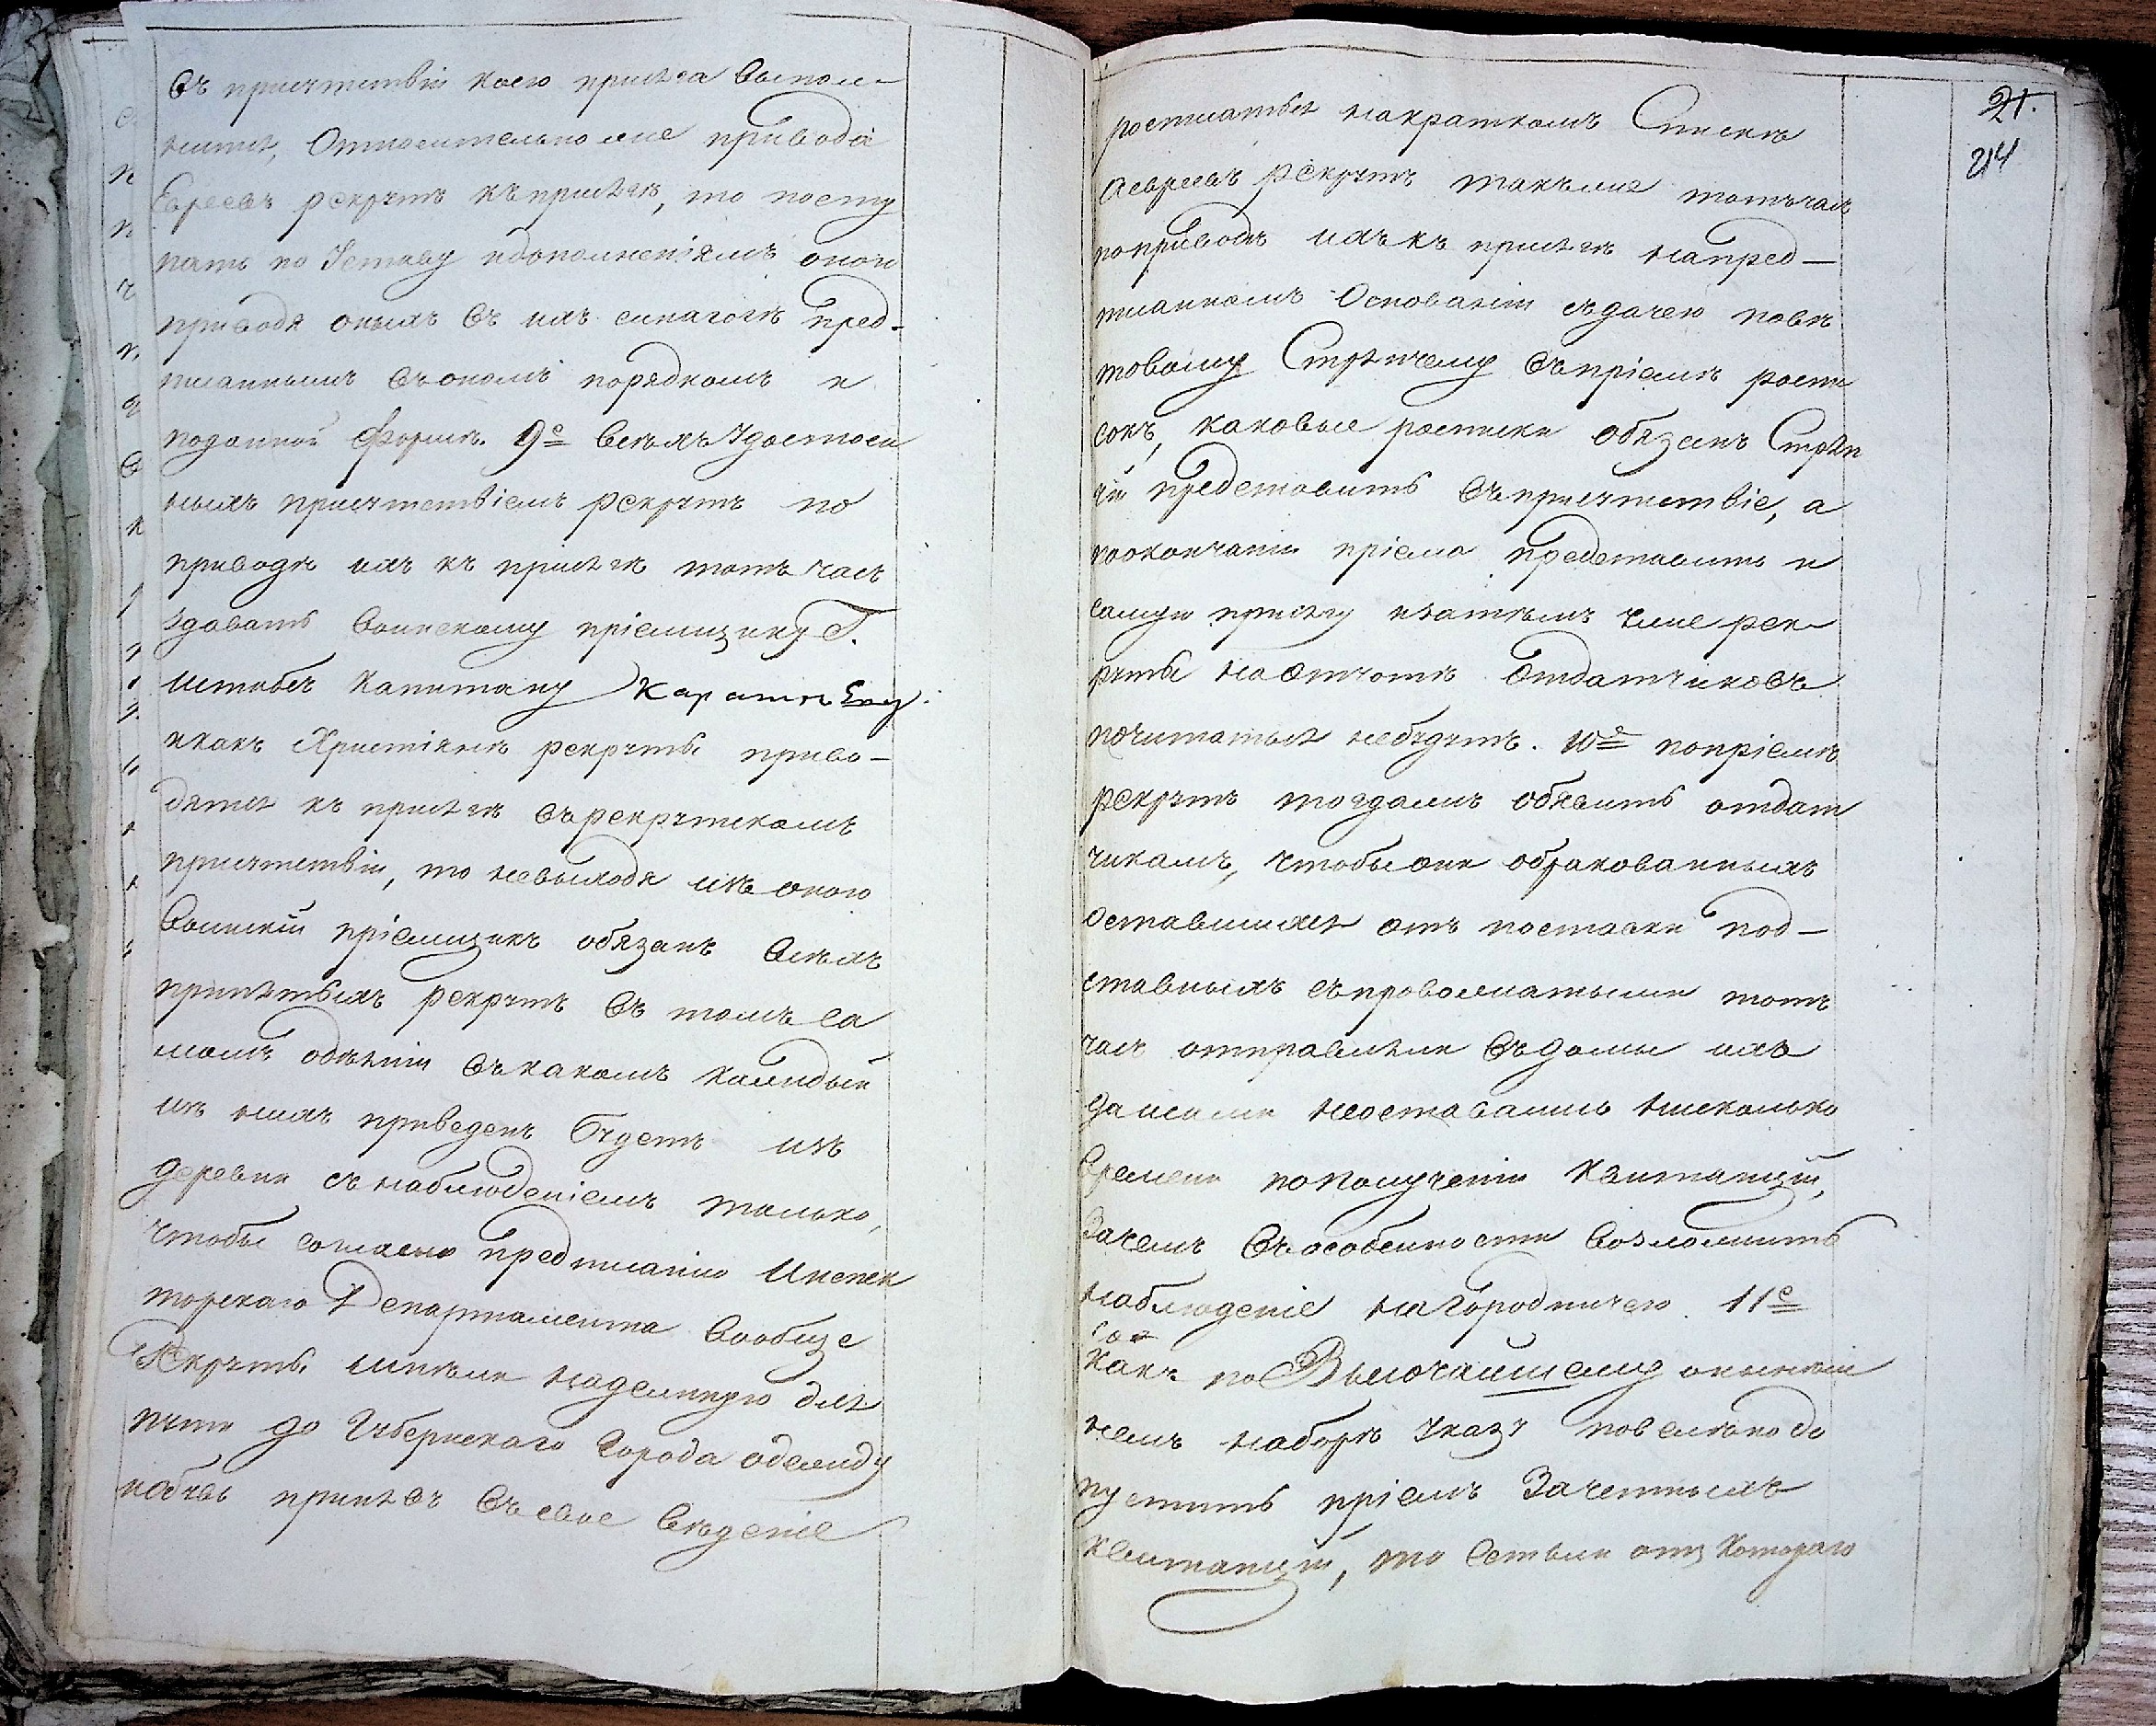 въ присутствіи коего присяга выпол-
нится, Относительно же привода
Евреевъ рекрутъ къ присягѣ, то посту
пать по Уставу идополненіямъ оной
приводя оныхъ въ ихъ синагогѣ пред-
писаннымъ въономъ порядкомъ и
поданной формѣ. 9е всѣхъ удостоен
ныхъ присутствіемъ рекрутъ по
приводѣ ихъ къ присягѣ тотъ часъ
здавать воинскому пріемщику Г.
Штабсъ Капитану
икакъ Христіянъ рекруты приво-
дятся къ присягѣ върекрутскомъ
присутствіи, то невыходя изъ оного
воинскій пріемщикъ обязанъ всѣхъ
принятыхъ рекрутъ въ томъ са
момъ одѣяніи въкакомъ каждый
изъ нихъ приведенъ будетъ изъ
деревни съ наблюденіемъ только,
чтобы согласно предписанію Инспек
торскаго Департамента вообще
Рекруты имѣли надежную для
пути до Губернскаго Города одежду
иобувь принявъ въ свое вѣденіе
21.
214
росписатся накраткомъ Спискѣ
аевреевъ рекрутъ такъже тотъчасъ
поприводѣ ихъ къ присягѣ напред-
писанномъ Основаніи съдачею повѣ
товому Стряпчему въпріемѣ роспи
сокъ, каковые росписки обязанъ Стряп
чій представить въприсутствіе, а
поокончаніи пріема представить и
самую присягу изатѣмъ уже рек-
руты наотчотѣ Отдатчиковъ
почитатся небудутъ. 10е попріемѣ
рекрутъ тогдажъ объявить отдат
чикамъ, чтобы они обракованныхъ
оставшихся отъ поставки под-
ставныхъ съпровожатыми тотъ
часъ отправляли въдомы ихъ
дасами неоставались нисколько
времени пополученіи квитанцій,
Зачемъ въособенности возложить
наблюденіе наГородничего. 11е
Какъ по Высочайшему онынѣш
немъ наборѣ указу повелѣнодо
пустить пріемъ Зачетныхъ
квитанцій, то естьли отъ Котораго